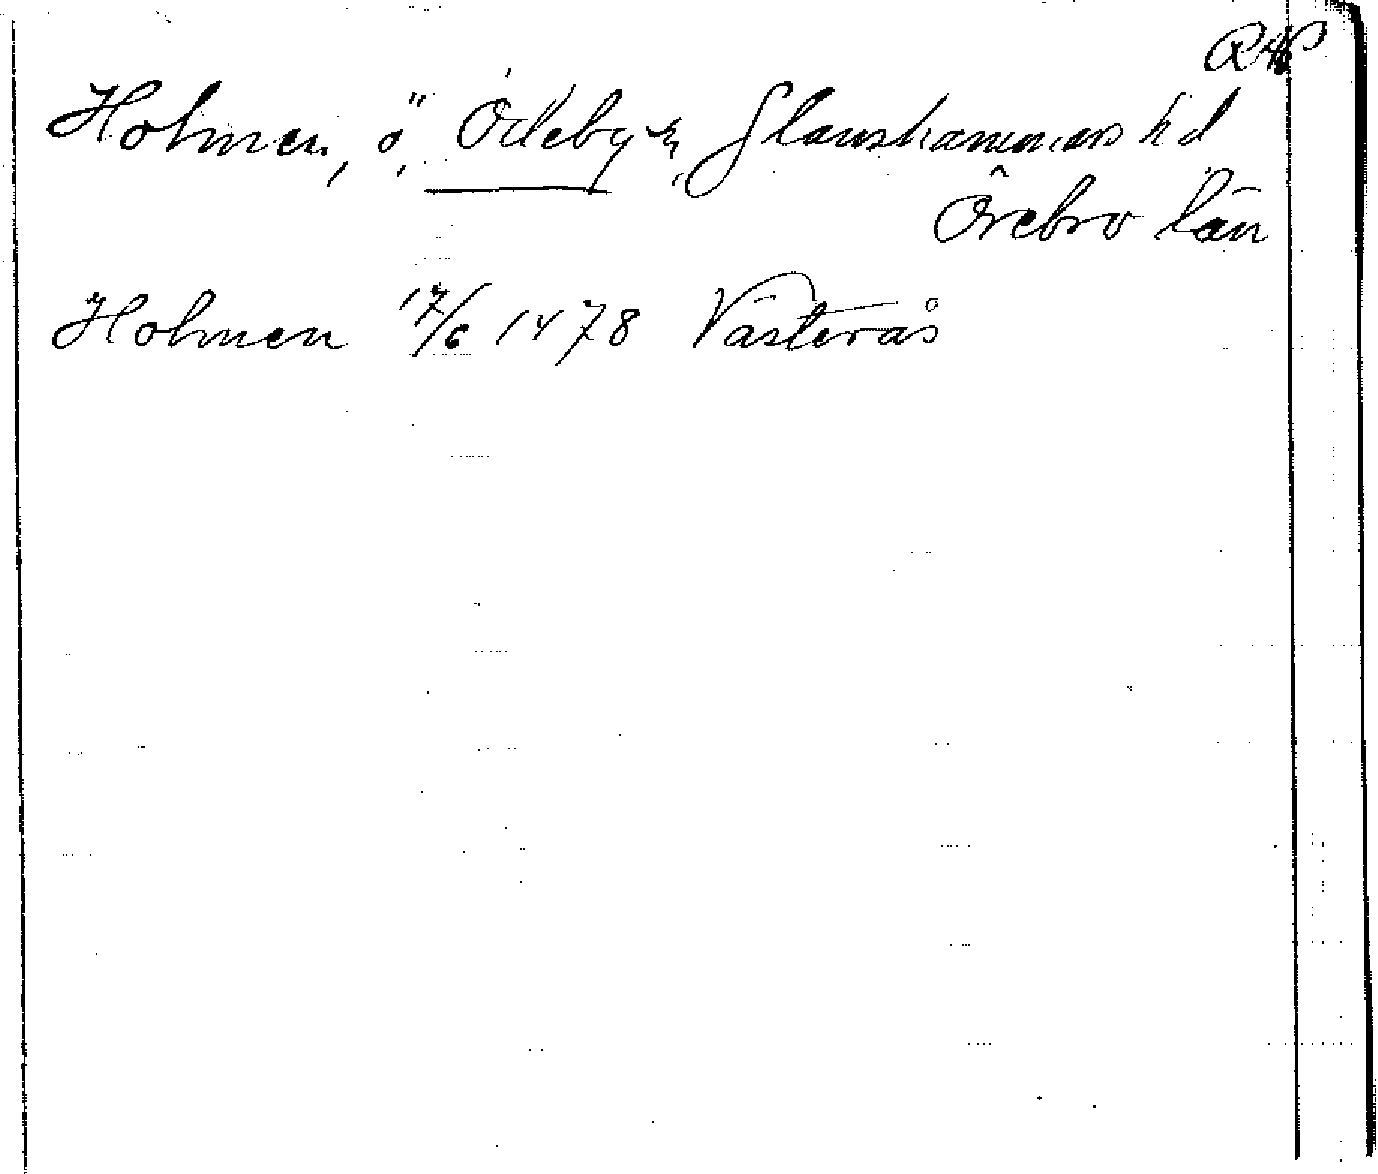 RAP
Holmen, ö, Ödeby sn, Glanshammars hd
Örebro län
Holmen 17/6 1478 Västerås